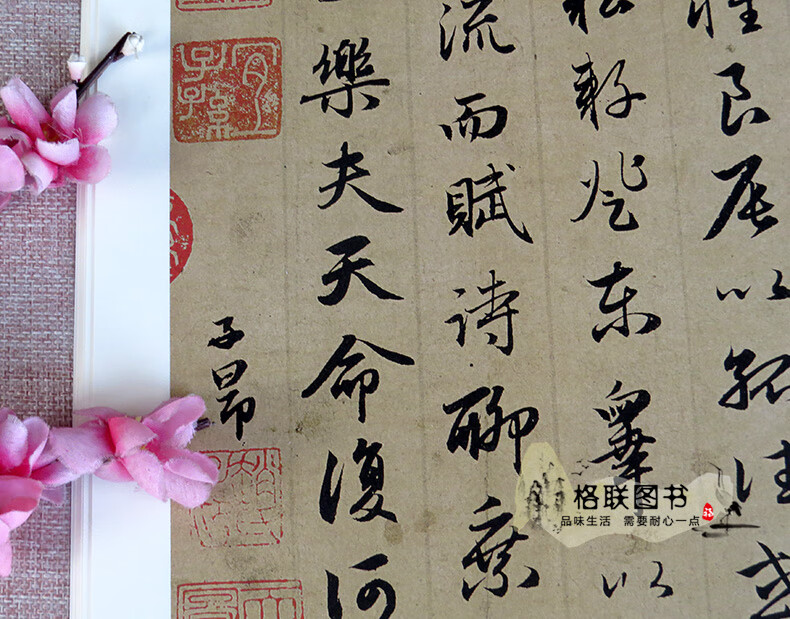 良辰以孤往或
耔登東皋以
流而賦詩聊乘
樂夫天命復何
子昂
格联图书
品味生活 需要耐心一点